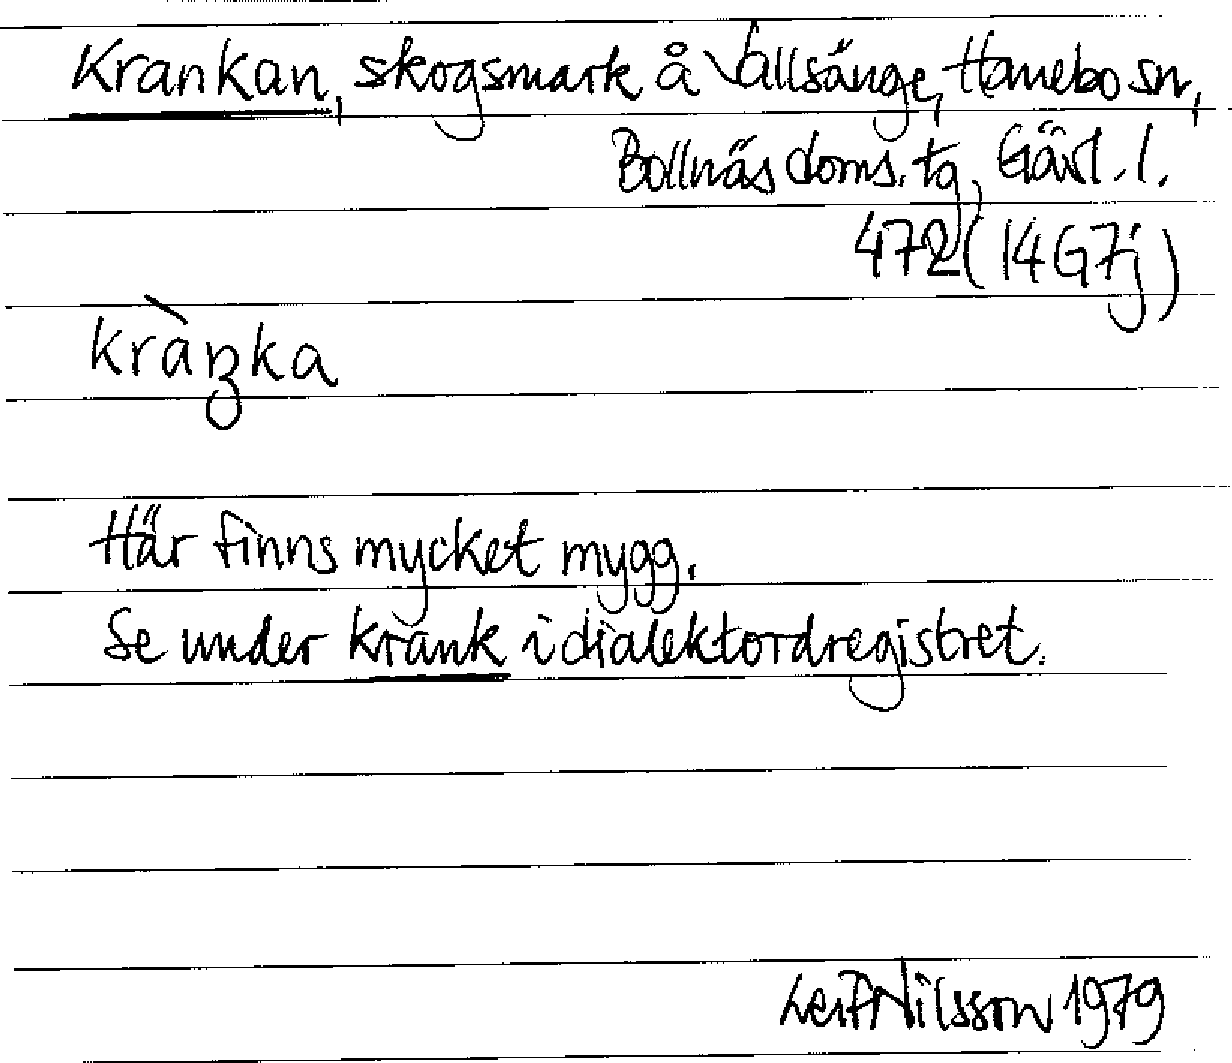 Krankan, skogsmark å Vallsänge, Hanebo sn,
Bollnäs doms. tg, Gävl. l.
472 (14G7j)
kràŋka
Här finns mycket mygg.
Se under krank i dialektordregistret.
Leif Nilsson 1979